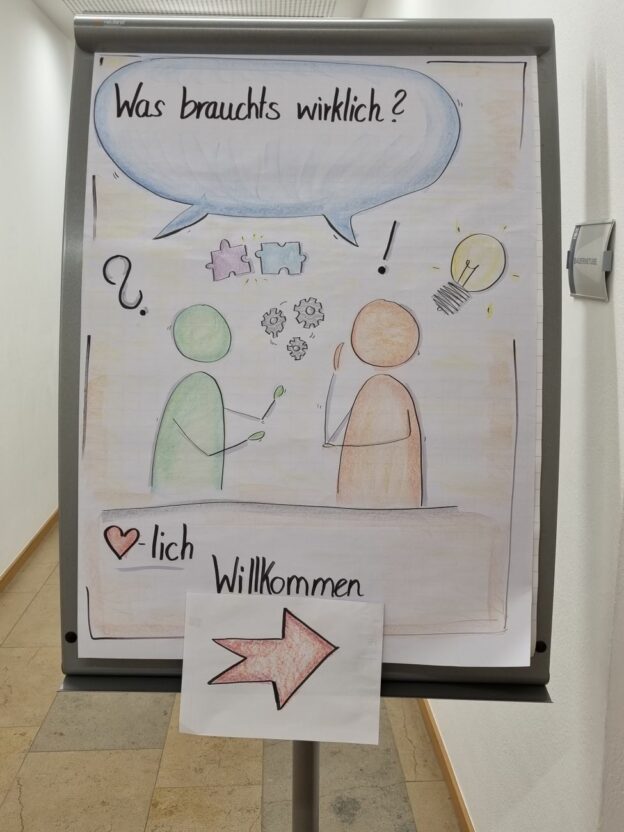 Was brauchts wirklich?
?
!
-lich
Willkommen
BAUERNSTUBE